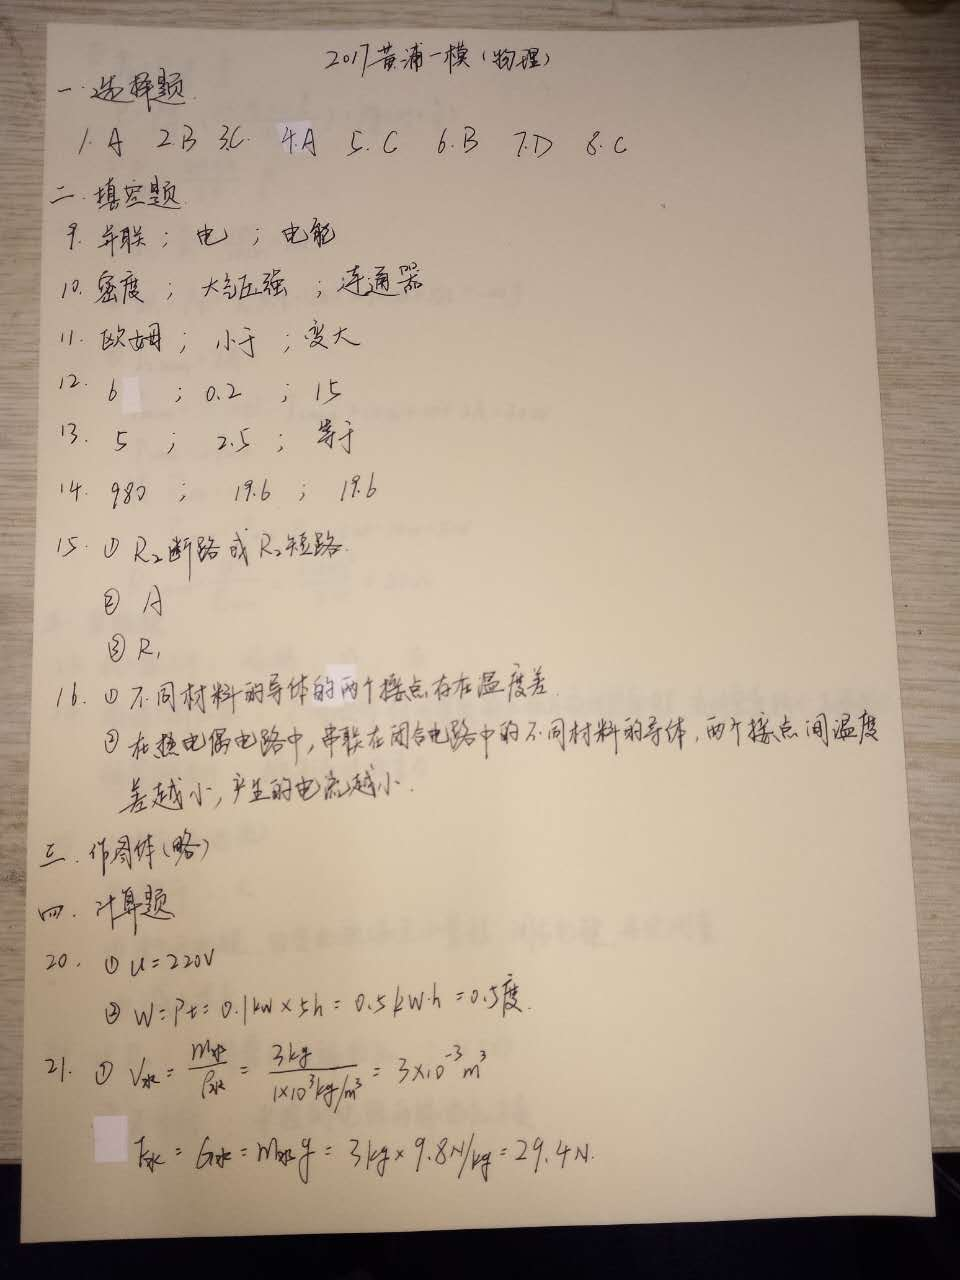 2017黄浦一模（物理）
一.选择题.
1.A 2.B 3.C. 4.A 5.C 6.B 7.D 8.C
二.填空题
9. 并联； 电 ； 电能
10. 密度 ； 大气压强 ；连通器
11. 欧姆 ； 小于 ；变大
12. 6 ；0.2 ；15
13. 5 ； 2.5 ； 等于
14. 980 ； 19.6 ； 19.6
15. ① R₂断路或R₂短路.
② A
③ R₁
16. ① 不同材料的导体的两个接点存在温度差.
② 在热电偶电路中，串联在闭合电路中的不同材料的导体，两个接点间温度
差越小，产生的电流越小.
三.作图体（略）
四.计算题
20. ① U=220V
② W=Pt=0.1kW×5h=0.5kW·h=0.5度.
21. ① V水=m水/ρ水=3kg/1×10³kg/m³=3×10⁻³m³
F水=G水=m水g=3kg×9.8N/kg=29.4N.